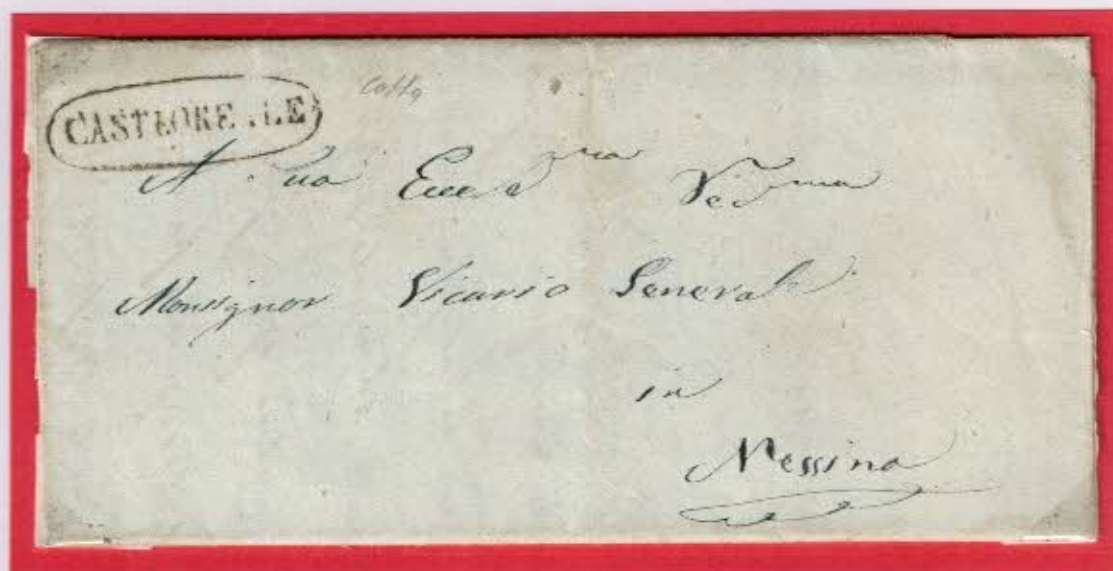 CASTROREALE
A Sua Ecc.za Rev.ma
Monsignor Vicario Generale
in
Messina